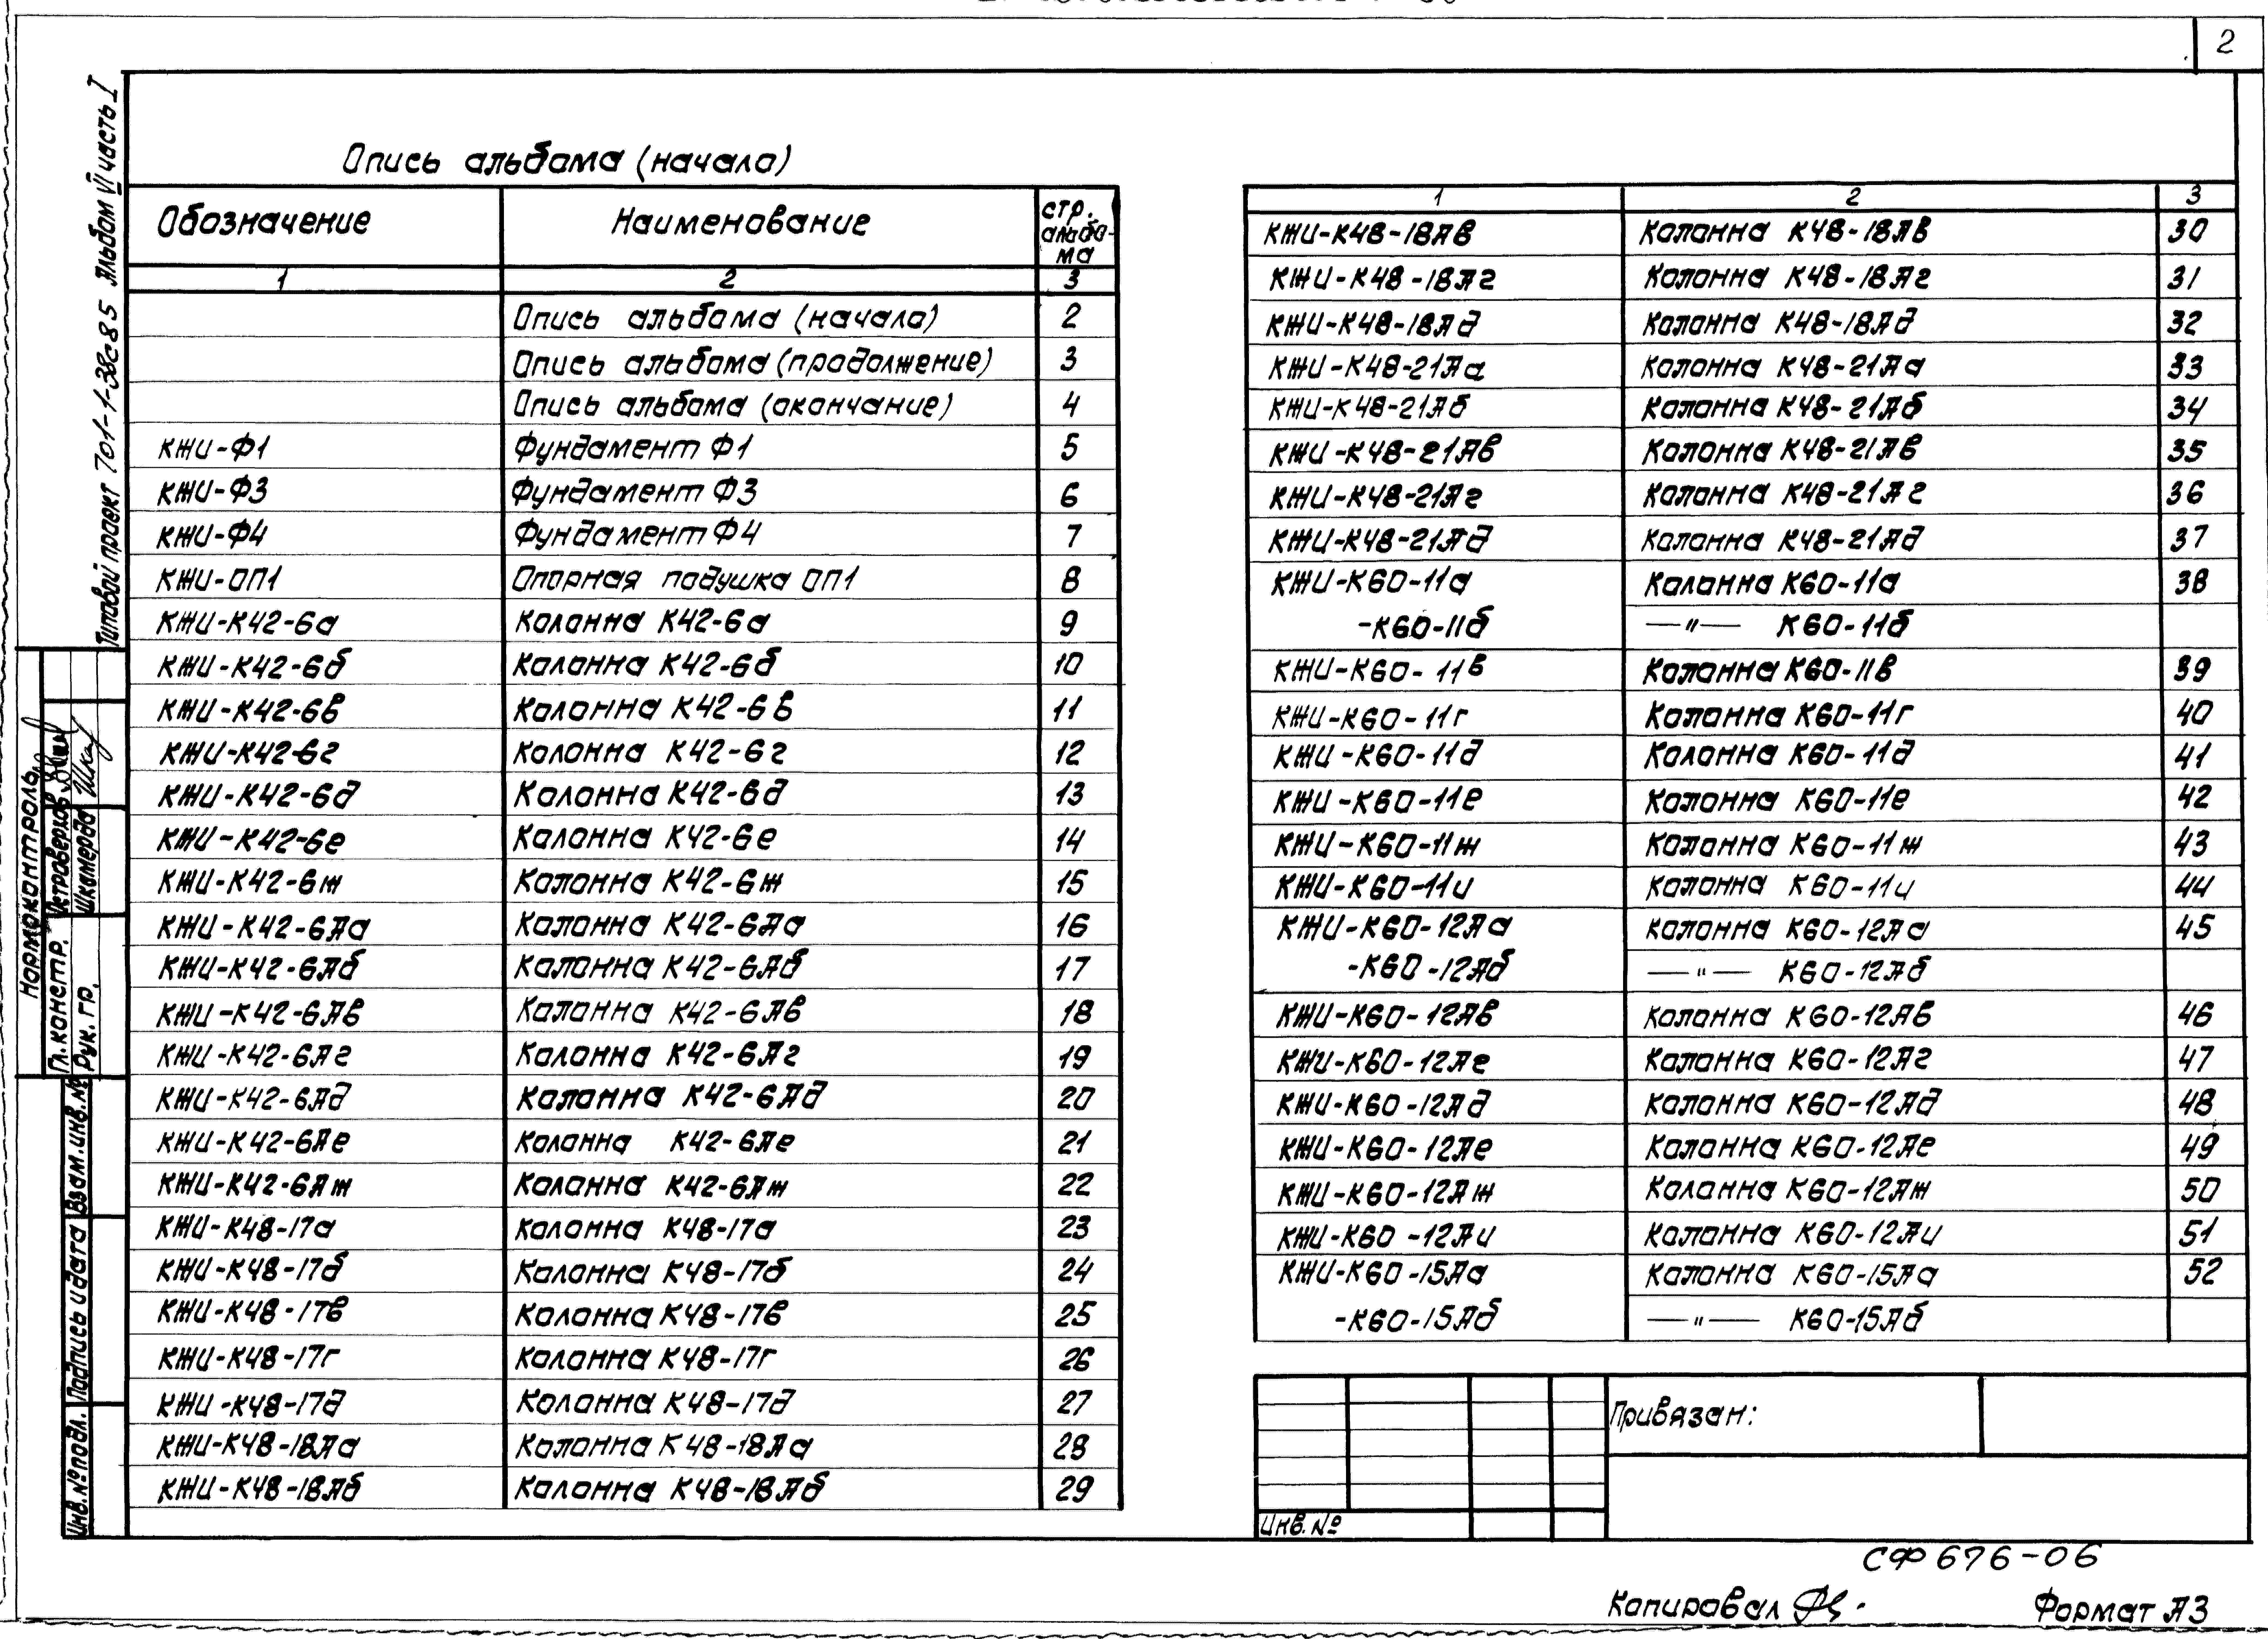 2
Типовой проект 701-1-38с85 Альбом VI часть I
Опись альбома (начало)
Обозначение Наименование стр. альбо-
ма
1 2 3
Опись альбома (начало) 2
Опись альбома (продолжение) 3
Опись альбома (окончание) 4
КЖИ-Ф1 Фундамент Ф1 5
КЖИ-Ф3 Фундамент Ф3 6
КЖИ-Ф4 Фундамент Ф4 7
КЖИ-ОП1 Опорная подушка ОП1 8
КЖИ-К42-6а Колонна К42-6а 9
КЖИ-К42-6б Колонна К42-6б 10
КЖИ-К42-6в Колонна К42-6в 11
КЖИ-К42-6г Колонна К42-6г 12
КЖИ-К42-6д Колонна К42-6д 13
КЖИ-К42-6е Колонна К42-6е 14
КЖИ-К42-6ж Колонна К42-6ж 15
КЖИ-К42-6Аа Колонна К42-6Аа 16
КЖИ-К42-6Аб Колонна К42-6Аб 17
КЖИ-К42-6Ав Колонна К42-6Ав 18
КЖИ-К42-6Аг Колонна К42-6Аг 19
КЖИ-К42-6Ад Колонна К42-6Ад 20
КЖИ-К42-6Ае Колонна К42-6Ае 21
КЖИ-К42-6Аж Колонна К42-6Аж 22
КЖИ-К48-17а Колонна К48-17а 23
КЖИ-К48-17б Колонна К48-17б 24
КЖИ-К48-17в Колонна К48-17в 25
КЖИ-К48-17г Колонна К48-17г 26
КЖИ-К48-17д Колонна К48-17д 27
КЖИ-К48-18Аа Колонна К48-18Аа 28
КЖИ-К48-18Аб Колонна К48-18Аб 29
1 2 3
КЖИ-К48-18Ав Колонна К48-18Ав 30
КЖИ-К48-18Аг Колонна К48-18Аг 31
КЖИ-К48-18Ад Колонна К48-18Ад 32
КЖИ-К48-21Аа Колонна К48-21Аа 33
КЖИ-К48-21Аб Колонна К48-21Аб 34
КЖИ-К48-21Ав Колонна К48-21Ав 35
КЖИ-К48-21Аг Колонна К48-21Аг 36
КЖИ-К48-21Ад Колонна К48-21Ад 37
КЖИ-К60-11а Колонна К60-11а 38
-К60-11б —"— К60-11б
КЖИ-К60-11в Колонна К60-11в 39
КЖИ-К60-11г Колонна К60-11г 40
КЖИ-К60-11д Колонна К60-11д 41
КЖИ-К60-11е Колонна К60-11е 42
КЖИ-К60-11ж Колонна К60-11ж 43
КЖИ-К60-11и Колонна К60-11и 44
КЖИ-К60-12Аа Колонна К60-12Аа 45
-К60-12Аб —"— К60-12Аб
КЖИ-К60-12Ав Колонна К60-12Ав 46
КЖИ-К60-12Ае Колонна К60-12Аг 47
КЖИ-К60-12Ад Колонна К60-12Ад 48
КЖИ-К60-12Ае Колонна К60-12Ае 49
КЖИ-К60-12Аж Колонна К60-12Аж 50
КЖИ-К60-12Аи Колонна К60-12Аи 51
КЖИ-К60-15Аа Колонна К60-15Аа 52
-К60-15Аб —"— К60-15Аб
Нормоконтроль
Гл. констр. Четроверков
Рук. гр. Шкамерда
Взам.инв.№
Подпись и дата
Инв.№подл.
Привязан:
Инв. №
СФ 676-06
Копировал
Формат А3